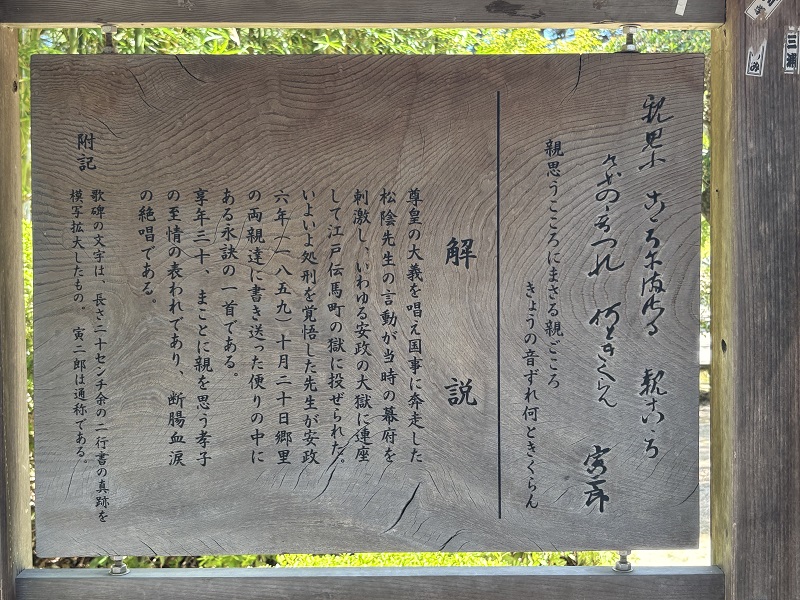 親思ふ こゝろにまさる 親こゝろ
けふの音つれ 何ときくらん
寅二郎
親思うこころにまさる親ごころ
きょうの音ずれ何ときくらん
解説
尊皇の大義を唱え国事に奔走した
松陰先生の言動が当時の幕府を
刺激し、いわゆる安政の大獄に連座
して江戸伝馬町の獄に投ぜられた。
いよいよ処刑を覚悟した先生が安政
六年(一八五九)十月二十日郷里
の両親達に書き送った便りの中に
ある永訣の一首である。
享年三十、まことに親を思う孝子
の至情の表われであり、断腸血涙
の絶唱である。
附記
歌碑の文字は、長さ二十センチ余の二行書の真跡を
模写拡大したもの。寅二郎は通称である。
三浦